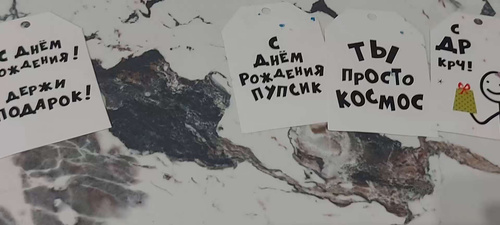 С ДНЁМ
РОЖДЕНИЯ!
ДЕРЖИ
ПОДАРОК!
С
ДНЁМ
РОЖДЕНИЯ
ПУПСИК
ТЫ
ПРОСТО
КОСМОС
С
ДР
КРЧ!